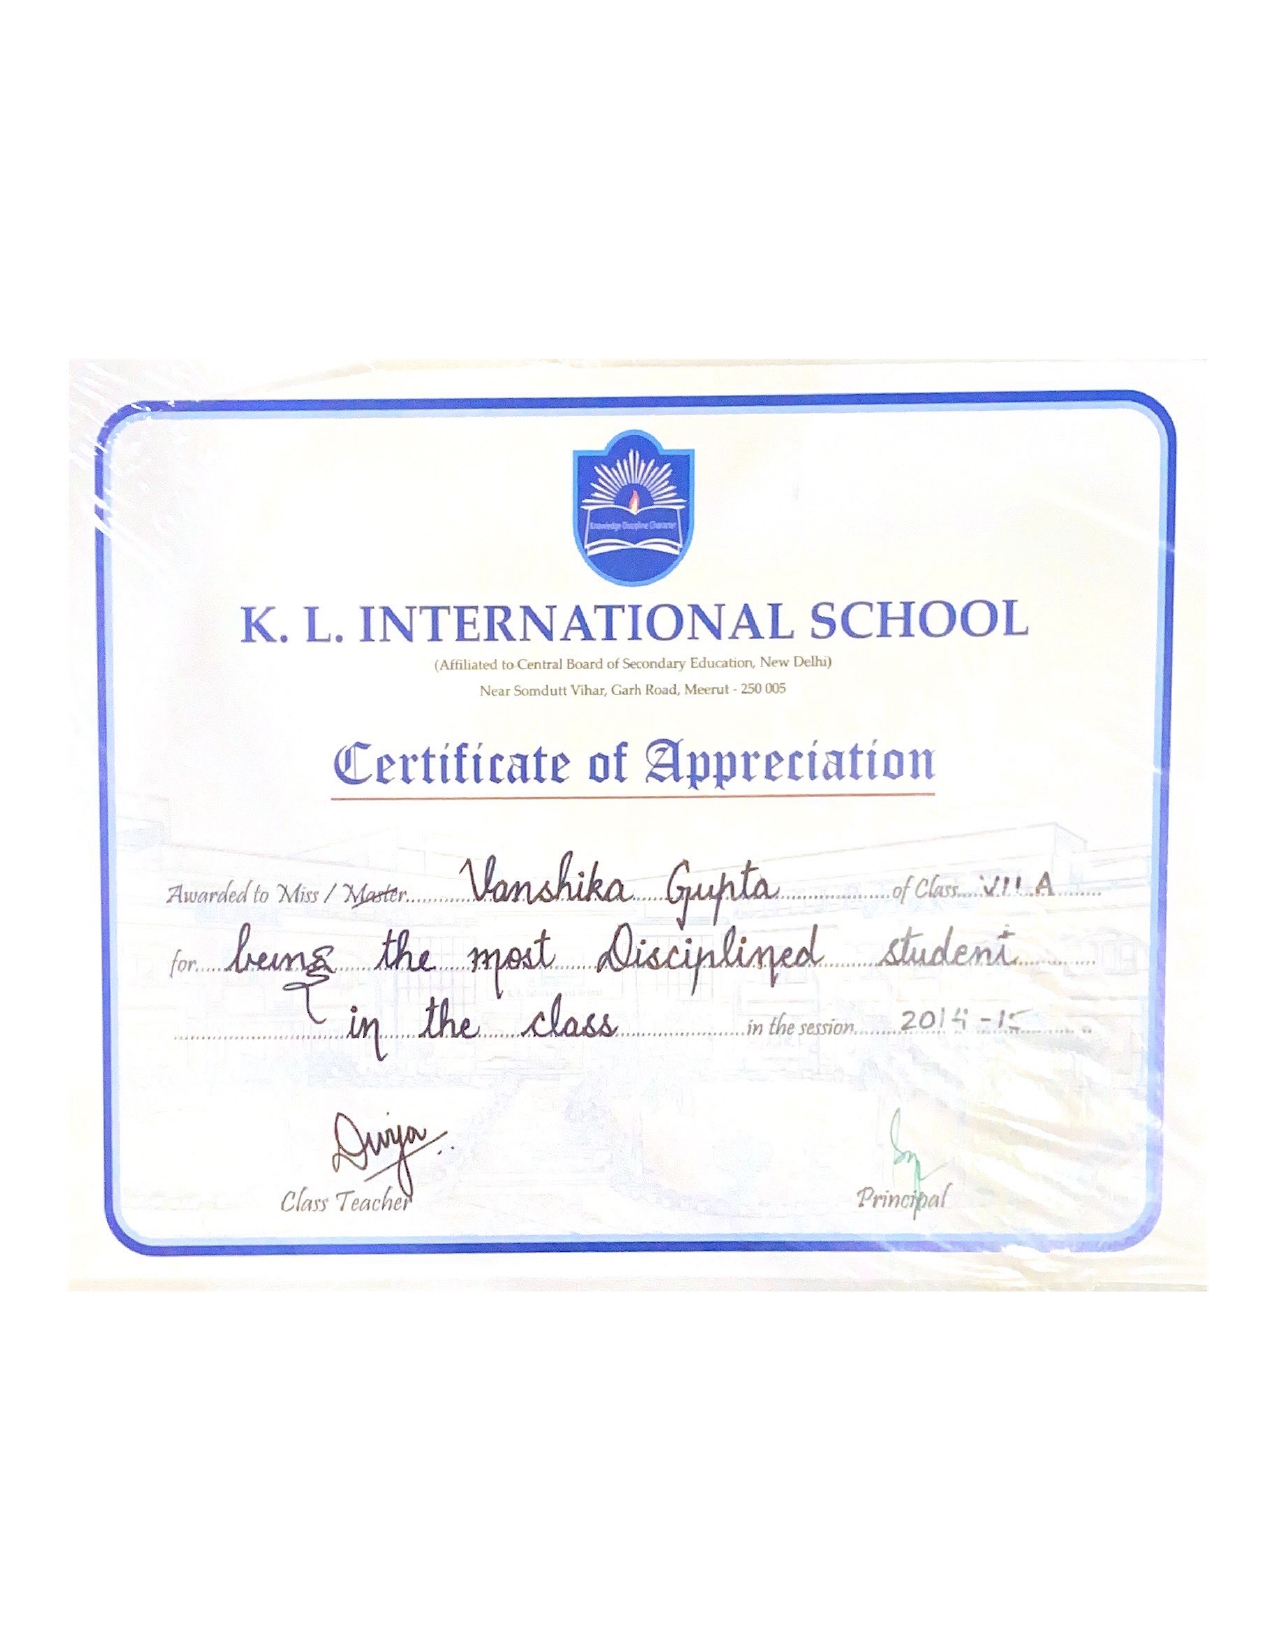 Knowledge Discipline Character
K. L. INTERNATIONAL SCHOOL
(Affiliated to Central Board of Secondary Education, New Delhi)
Near Somdutt Vihar, Garh Road, Meerut - 250 005
Certificate of Appreciation
Awarded to Miss / Master Vanshika Gupta of Class VII A
for being the most Disciplined student
in the class in the session 2014-15
Divya
Class Teacher Principal